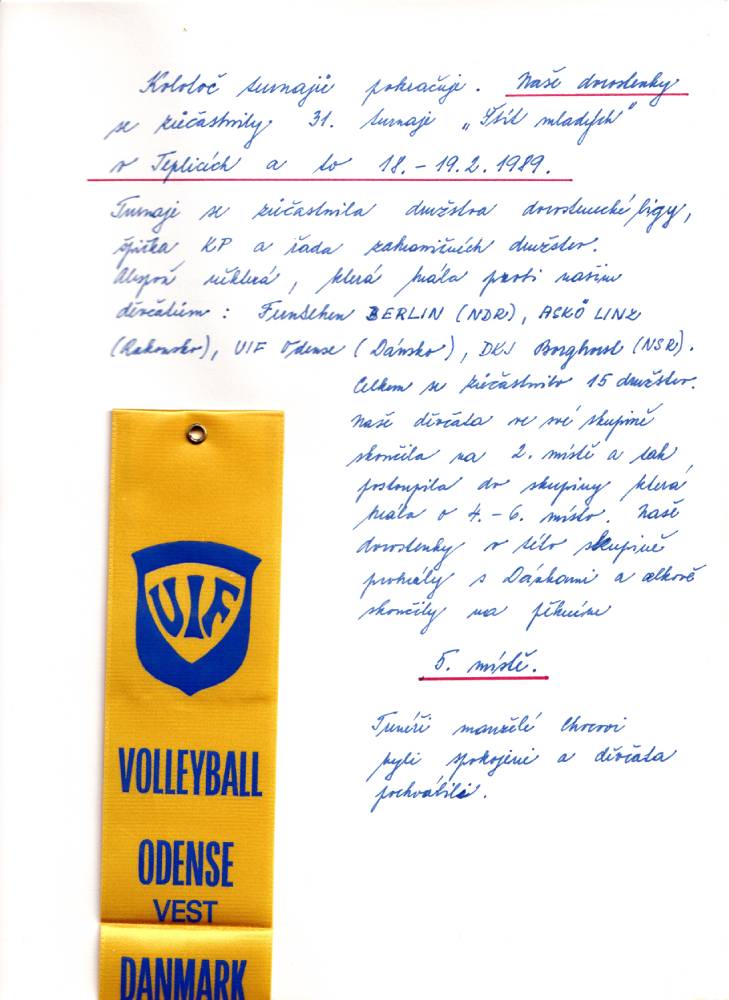 Kolotoč turnajů pokračuje. Naše dorostenky
se zúčastnily 31. turnaje „Štít mladých"
v Teplicích a to 18. – 19. 2. 1989.
Turnaje se zúčastnila družstva dorostenecké ligy,
špička KP a řada zahraničních družstev.
Alespoň některá, která hrála proti našim
děvčatům: BERLIN (NDR), ASKÖ LINZ
(Rakousko), UIF Odense (Dánsko), DKJ Borghorst (NSR).
Celkem se zúčastnilo 15 družstev.
Naše děvčata ve své skupině
skončila na 2. místě a tak
postoupila do skupiny která
hrála o 4. – 6. místo. Naše
dorostenky v této skupině
prohrály s Dánkami a celkově
skončily na pěkném
5. místě.
Trenéři manželé
byli spokojeni a děvčata
pochválili.
UIF
VOLLEYBALL
ODENSE
VEST
DANMARK